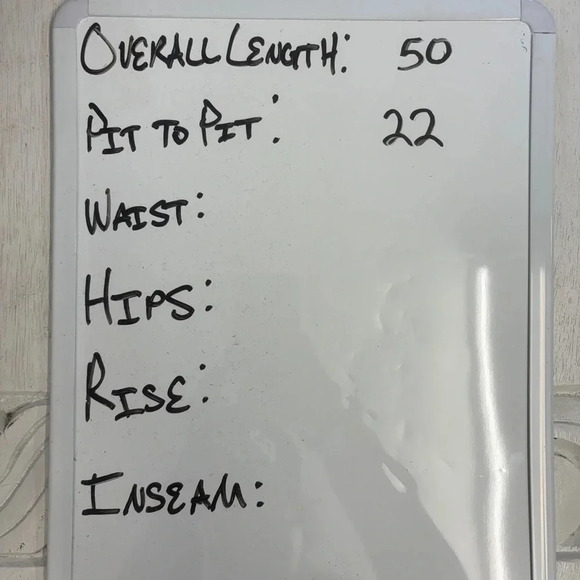 OVERALL LENGTH: 50
PIT TO PIT: 22
WAIST:
HIPS:
RISE:
INSEAM: